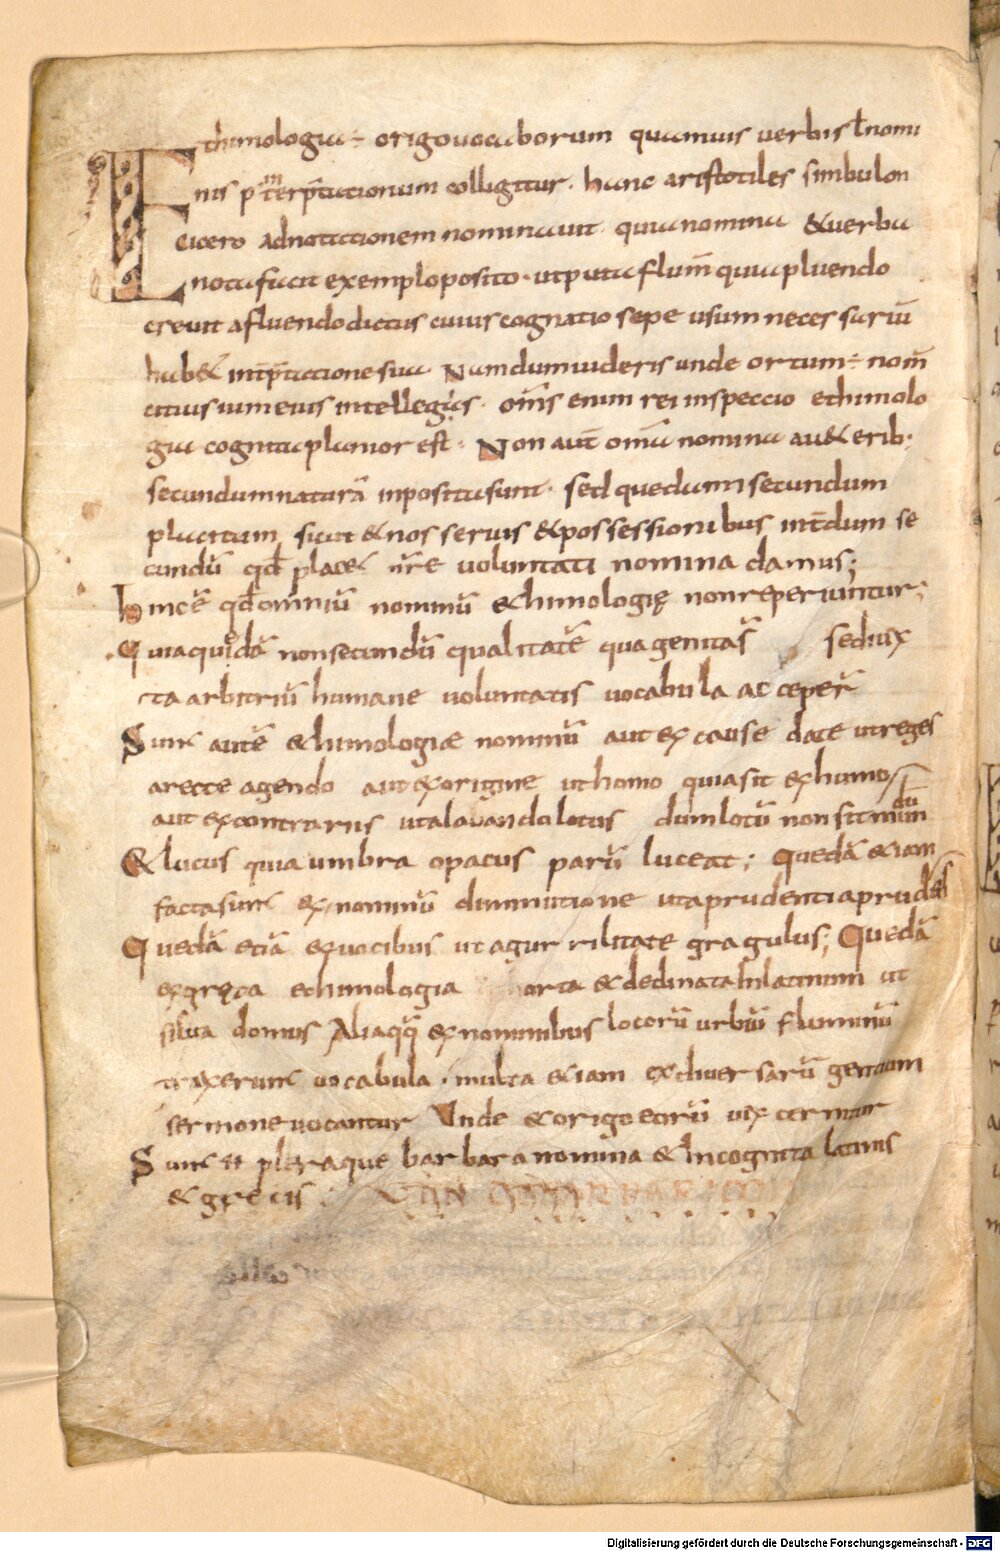 Ethimologia ÷ origo uocaborum quamuis uerbis ł nomi
nis p int̄erp̄tationum colligitur · hanc aristotiles simbulon
cicero adnotationem nominauit · quia nomina &uerba
nota facit exemplo posito · utputa flum̄ quia pluendo
creuit a fluendo dictus cuius cognatio sepe usum necessariū
hab& int̄p̄tatione sua Nam dum uideris unde ortum ÷ nom̄
citius uim eius intellegis · om̄s enim rei inspeccio ethimolo
gia cognita planior est · Non aut̄ omā nomina a u&erib·
secundum naturā inposita sunt · sed quedam secundum
placitum sicut &nos seruis &possessionibus int̄dum se
cundū qđ plac& nr̄e uoluntati nomina damus;
hinc ē qđ omniū nominū &himologię non reperiuntur;
Quia quędā non secundū qualitatē qua genita s̄ sed iux
ta arbitriū humane uoluntatis uocabula acceper̄
Sunt autē &himologiæ nominū aut ex cause date ut reges
a recte agendo aut ex origine ut homo quia sit ex humo
aut ex contrariis ut a lauando lotus dum lotū non sit mundū
&lucus quia umbra opacus parū luceat; quedā &iam
facta sunt ex nominū diminutione ut a prudentia prudens
Quedā etiā ex uocibus ut a gurrilitate gragulus; Quedā
ex gręca ethimologia orta &declinata in latinum ut
silua domus Aliaqꝗ̄ ex nominibus locorū urbiū fluminū
traxerunt uocabula · multa &iam ex diuersarū gentium
sermone uocantur Unde &origo eorū uix cernitur
Sunt et pleraque barbara nomina &incognita latinis
&grecis ·